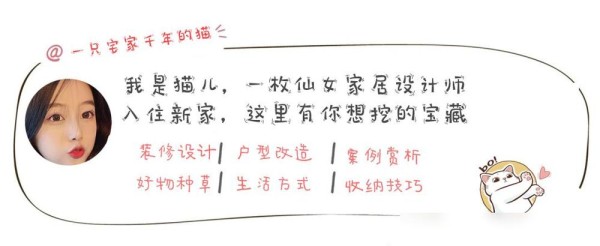 @一只宅家千年的猫
我是猫儿，一枚仙女家居设计师
入住新家，这里有你想挖的宝藏
装修设计| 户型改造 |案例赏析
好物种草|生活方式|收纳技巧
bo!